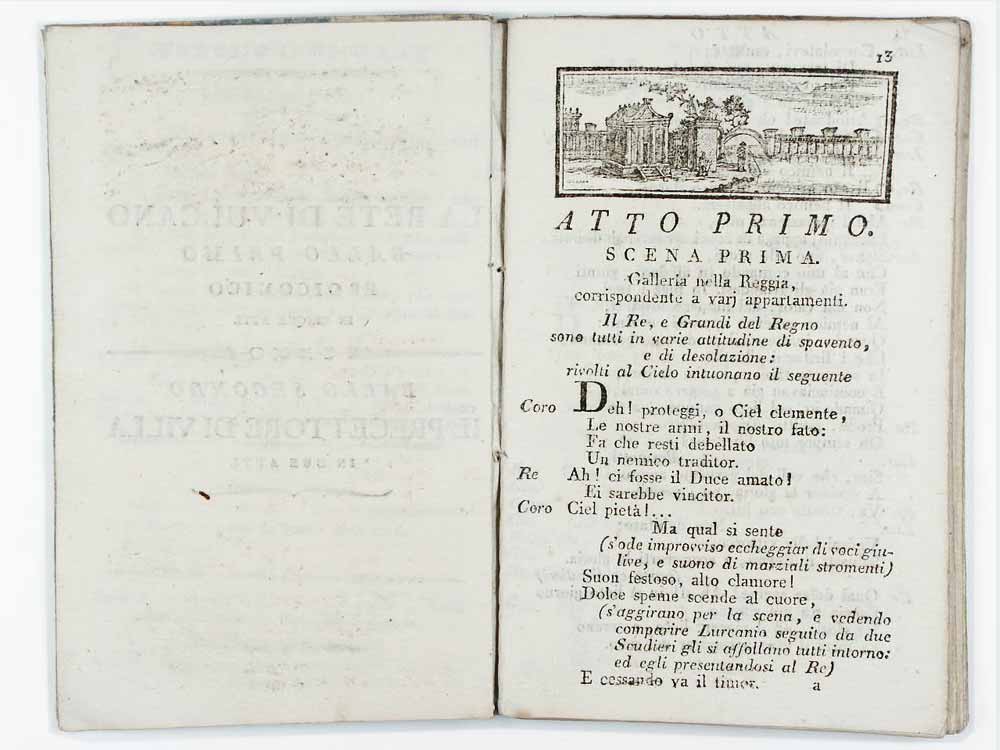 13
ATTO PRIMO.
SCENA PRIMA.
Galleria nella Reggia,
corrispondente a varj appartamenti.
Il Re, e Grandi del Regno
sono tutti in varie attitudine di spavento,
e di desolazione:
rivolti al Cielo intuonano il seguente
Coro Deh! proteggi, o Ciel clemente,
Le nostre armi, il nostro fato:
Fa che resti debellato
Un nemico traditor.
Re Ah! ci fosse il Duce amato!
Ei sarebbe vincitor.
Coro Ciel pietà!...
Ma qual si sente
(s'ode improvviso eccheggiar di voci giu-
live, e suono di marziali stromenti)
Suon festoso, alto clamore!
Dolce speme scende al cuore,
(s'aggirano per la scena, e vedendo
comparire Lurcanio seguito da due
Scudieri gli si affollano tutti intorno:
ed egli presentandosi al Re)
E cessando va il timor. a